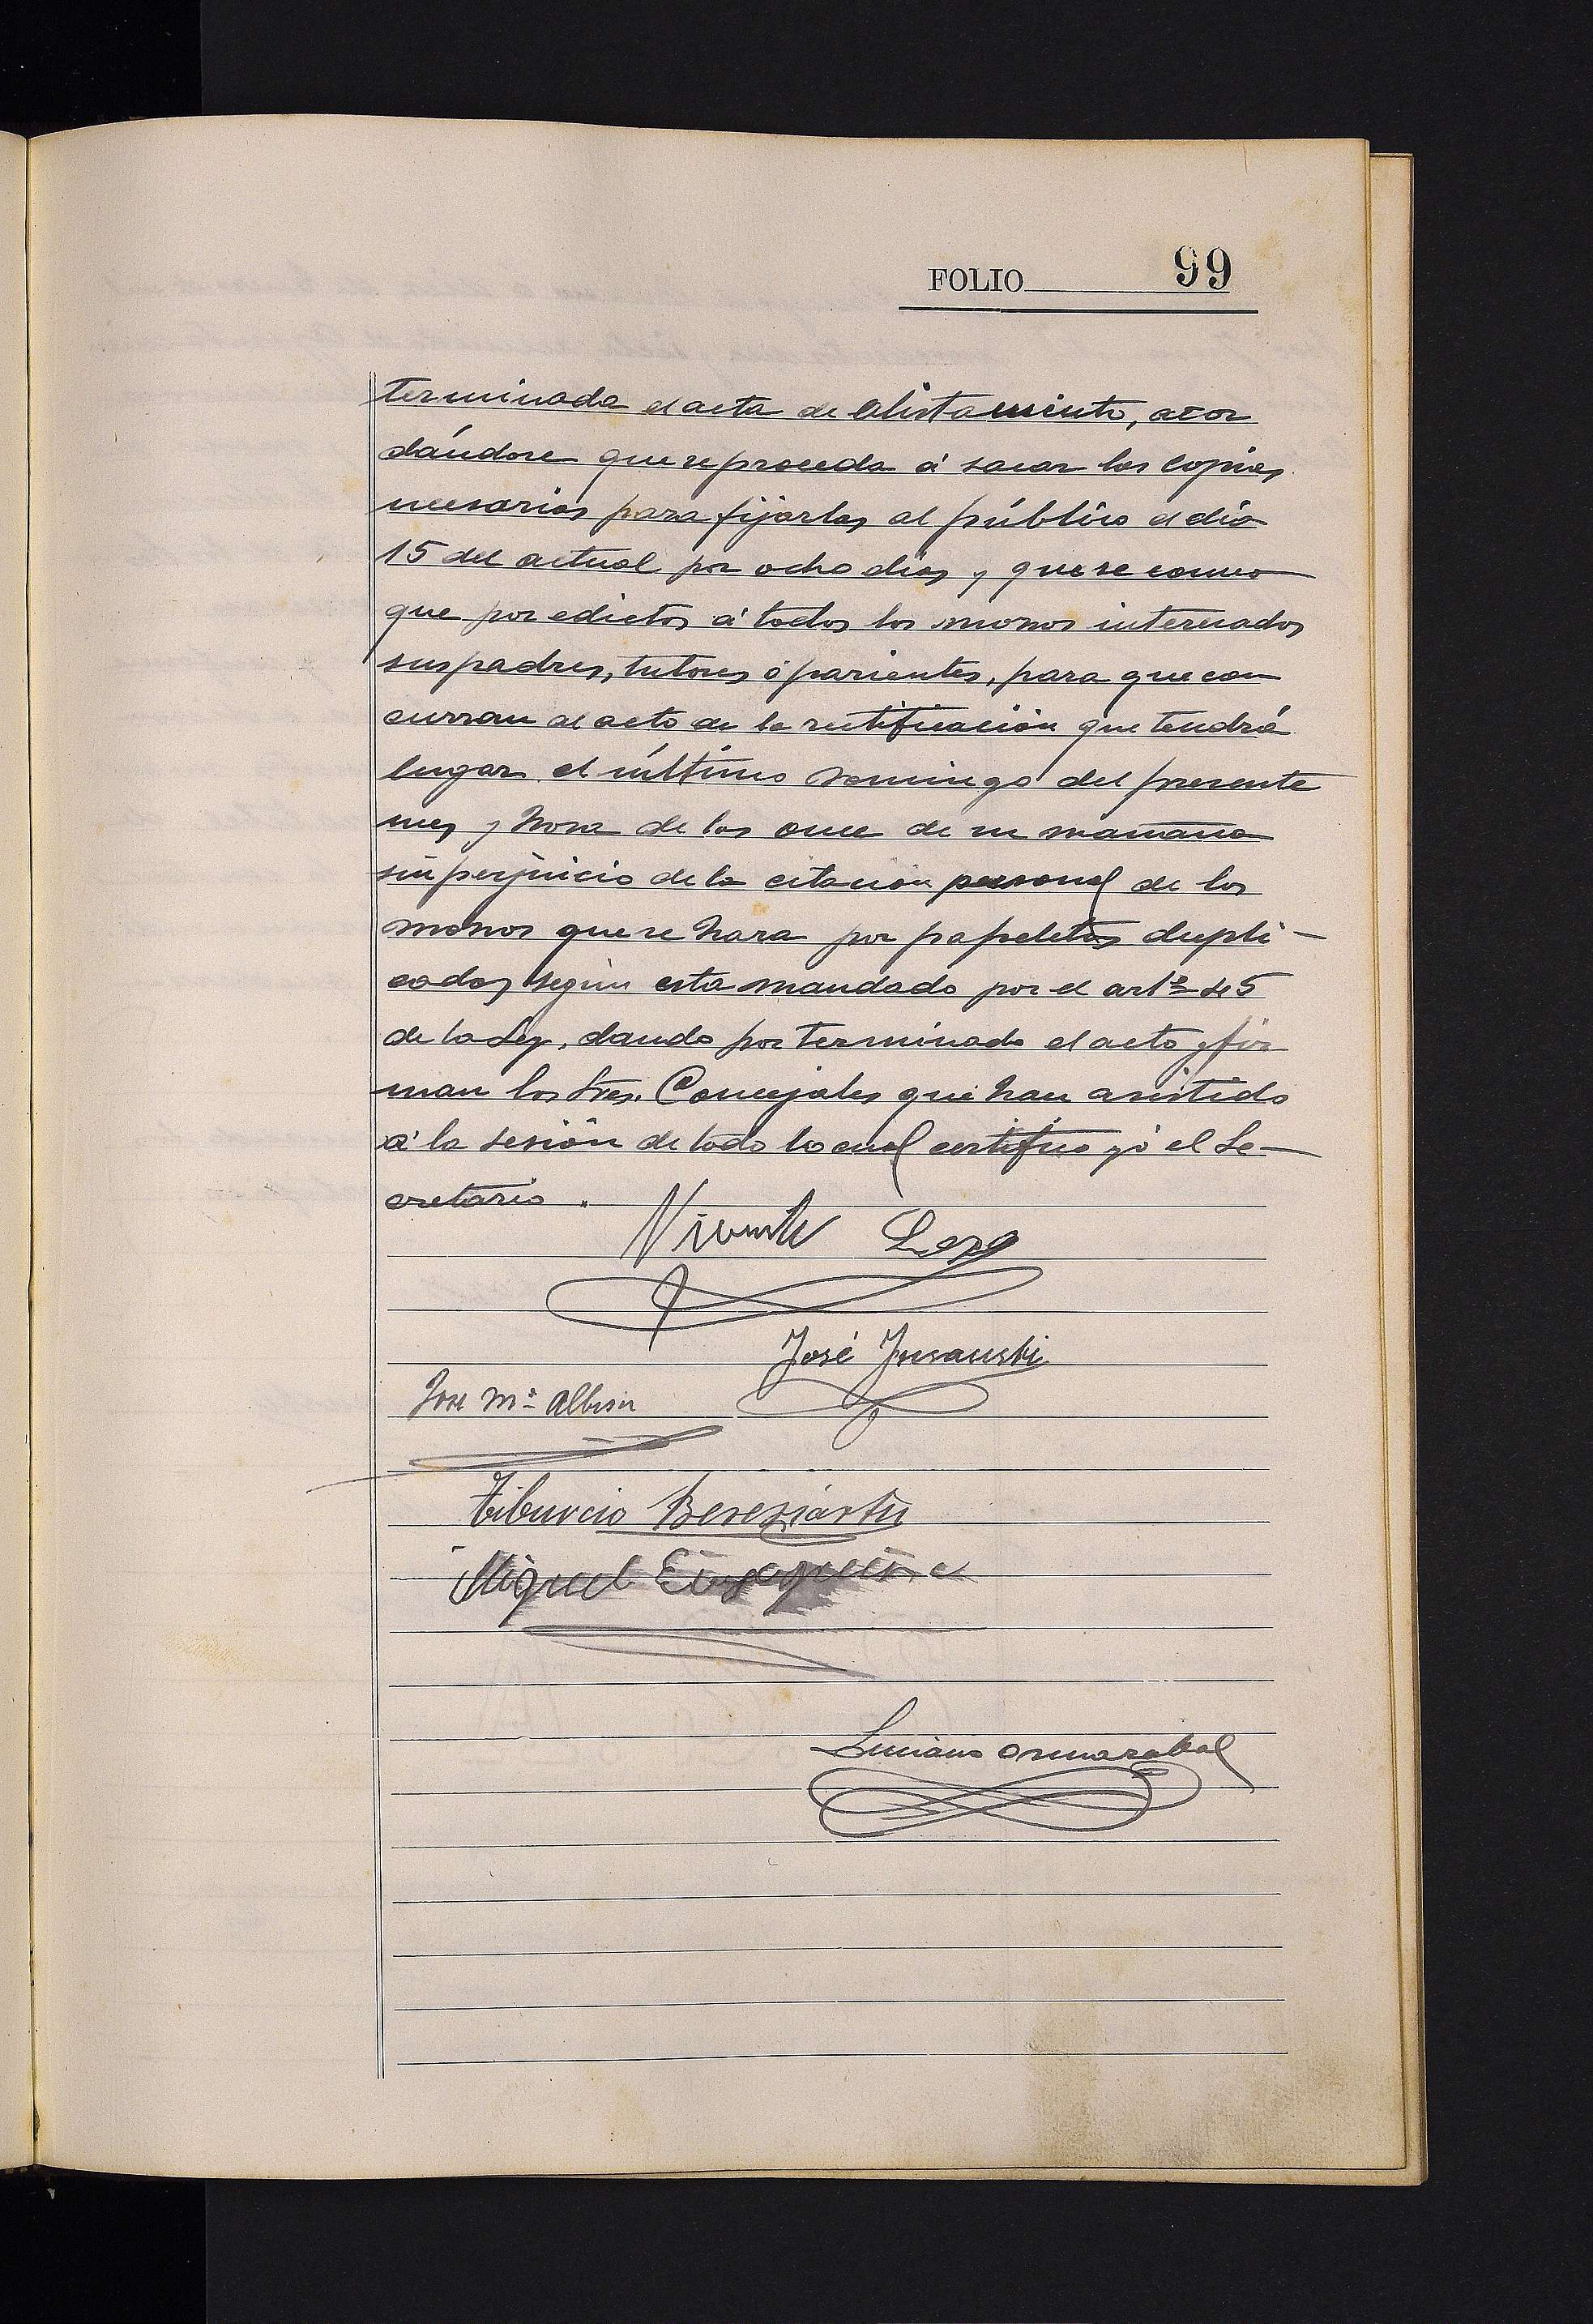 FOLIO 99
terminada el acta de alistamiento, acor
dándose que se proceda á sacar las copias
necesarias para fijarlas al público el dia
15 del actual por ocho dias y que se convo
que por edictos á todos los mozos interesados
sus padres, tutores ó parientes, para que con
curran al acto de la rectificación que tendrá
lugar el último Domingo del presente
mes y hora de las once de su mañana
sin perjuicio de la citacion personal de los
mozos que se hara por papeletas dupli-
cadas segun esta mandado por el artº 45
de la Ley, dando por terminado el acto y fir
man los Sres. Concejales que han asistido
á la sesión de todo lo cual certifico yó el Se-
cretario.
Vicente Lezo
José Insausti
José Mª Albisu
Tiburcio Bereziartu
Miguel
Luciano Ormazabal